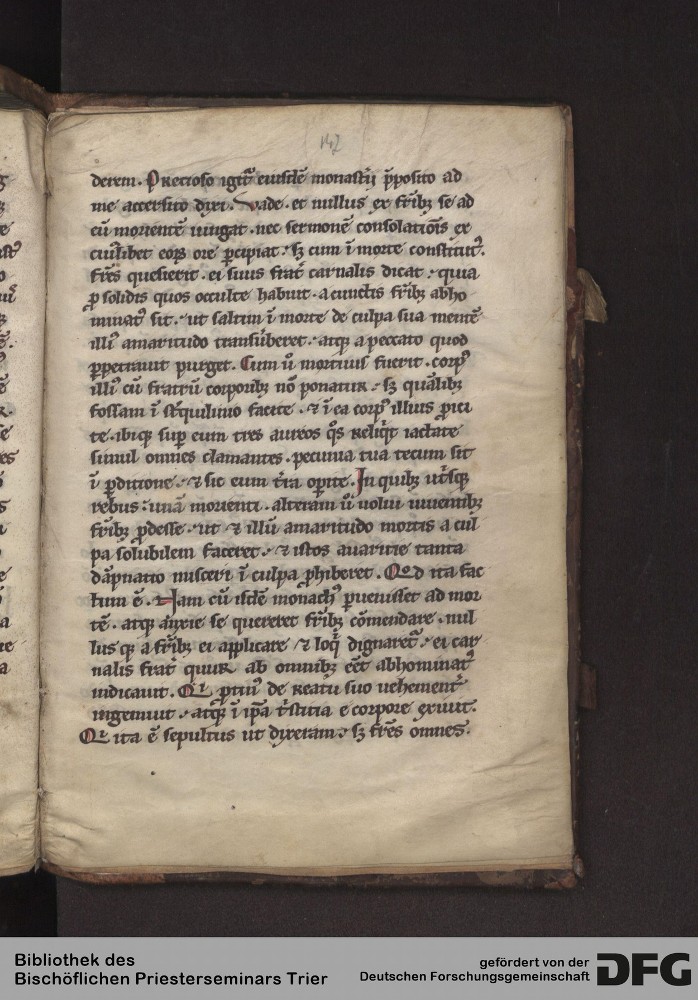 147
derem. Precioso igit᷑ eiusdē monast̄ii p̄posito ad
me accersito dixi. Vade. et nullus ex fr̄ibꝫ se ad
eū morientē iungat. nec sermonē consolatiōis ex
cui᷑libet eoꝝ ore ꝑcipiat. sꝫ cum ī morte constitutꝰ.
fr̄es quesierit. ei suus frat᷑ carnalis dicat. quia
ꝓ solidis quos occulte habuit. a cunctis fr̄ibꝫ abho
minatꝰ sit. ut saltim ī morte de culpa sua mentē
illiꝰ amaritudo transūberet. atqꝫ a peccato quod
ꝑpetrauit purget. Cum ū mortuus fuerit. corpꝰ
illiꝰ cū fratrū corporibꝫ nō ponatur. sꝫ quālibꝫ
fossam ī st᷑quilinio facite. ⁊ ī ea corpꝰ illius ꝓici
te. ibiqꝫ suꝑ eum tres aureos q̄s reliq̇t iactate
simul omnes clamantes. pecunia tua tecum sit
ī ꝑditione. ⁊ sic eum t̄ra oꝑite. In quibꝫ ut᷑sqꝫ
rebus. unā morienti. alteram ū uolui uiuentibꝫ
fr̄ibꝫ ꝓdesse. ut ⁊ illū amaritudo mortis a cul
pa solubilem faceret. ⁊ istos auaritie tanta
dāpnatio misceri ī culpa ꝓhiberet. Qd̄ ita fac
tum ē. Nam cū isdē monachꝰ ꝑuenisset ad mor
tē. atqꝫ anxie se quereret fr̄ibꝫ cōmendare. nul
lus qꝫ a fr̄ibꝫ ei applicare ⁊ loq̇ dignaret᷑. ei car
nalis frat᷑ qur ab omnibꝫ eēt abhominatꝰ
indicauit. Qi ꝓtinꝰ de reatu suo uehement᷑
ingemuit. atqꝫ ī ip̄a t᷑stitia e corpore exiuit.
Qi ita ē sepultus ut dixeram. sꝫ fr̄es omnes.
Bibliothek des
Bischöflichen Priesterseminars Trier
gefördert von der
Deutschen Forschungsgemeinschaft
DFG